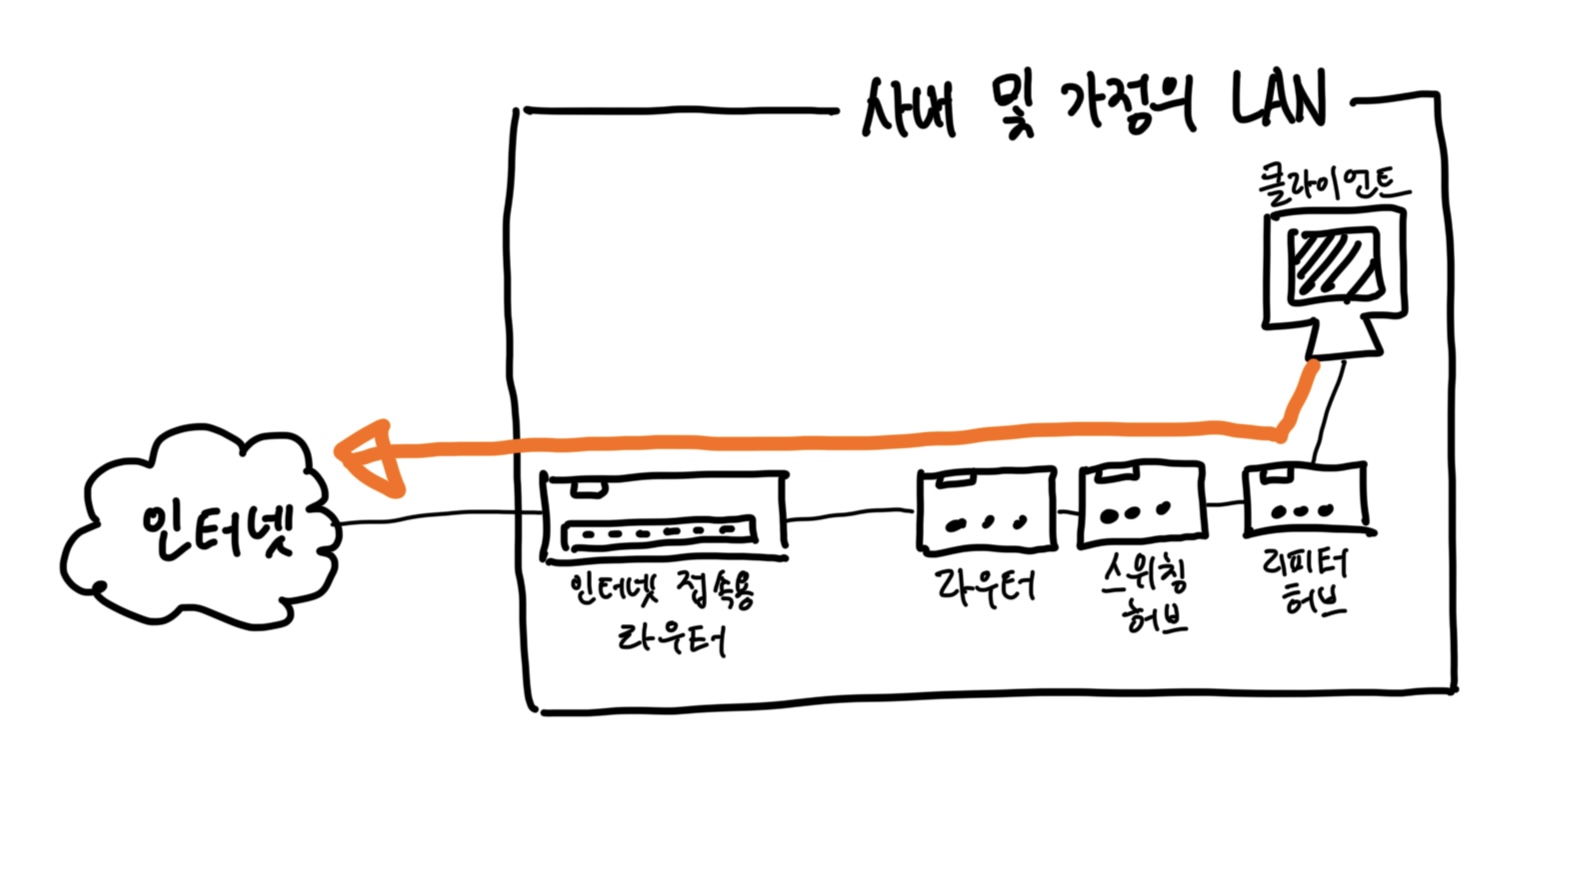 사내 및 가정의 LAN
클라이언트
인터넷
인터넷 접속용
라우터
라우터
스위칭
허브
리피터
허브